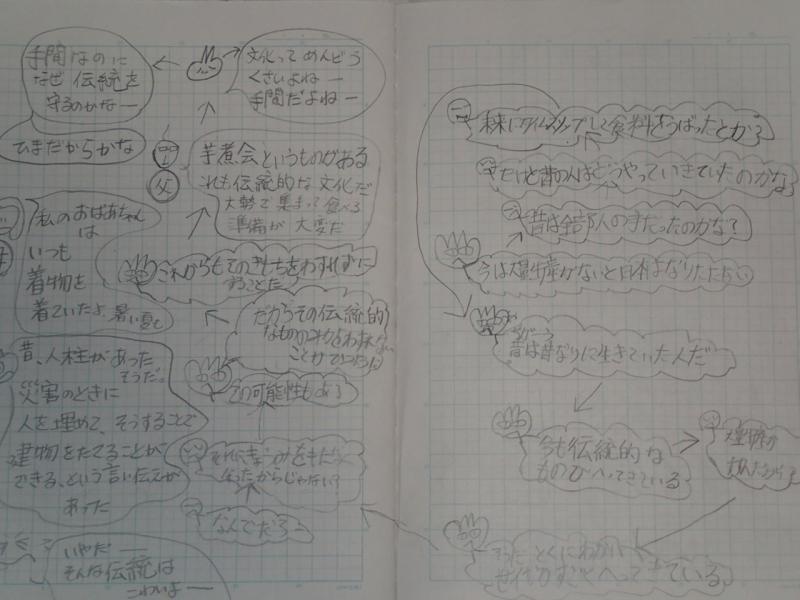 文化ってめんどう
くさいよねー
手間だよねー
手間なのに
なぜ伝統を
守るのかなー
ひまだからかな
芋煮会というものがある
これも伝統的な文化だ
大勢で集まって食べる
準備が大変だ
父
私のおばあちゃん
は
いつも
着物を
着ていたよ、暑い夏も
これからもそのきもちをわすれずに
することだ
だからその伝統的
なもの
その可能性もある
昔、人柱があった
そうだ。
災害のときに
人を埋めて、そうすることで
建物をたてることが
できる、という言い伝えが
あった
なんでだろー
いやだー
そんな伝統は
こわいよー
未来にタイムスリップして食料をうばったとか?
昔の人はどうやっていきていたのかな?
昔は全部人の手だったのかな?
今は大量生産がないと日本はなりたたない
昔は昔なりに生きていた人だ
今も伝統的な
ものがへってきている
大量生産が
とくにわかい